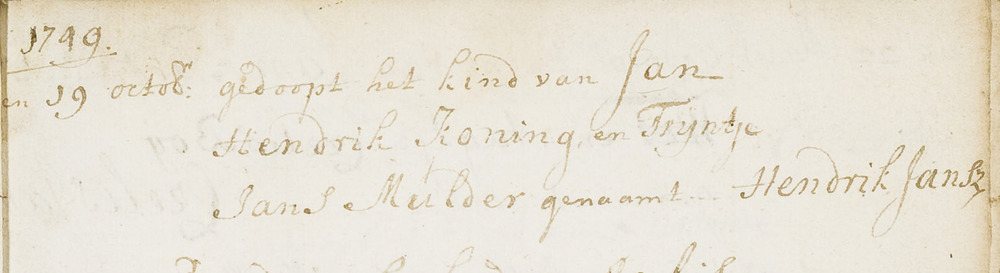 1749.
en 19 octobr: gedoopt het kind van Jan
Hendrik Koning, en Tryntje
Jans Mulder genaamt... Hendrik Jansz